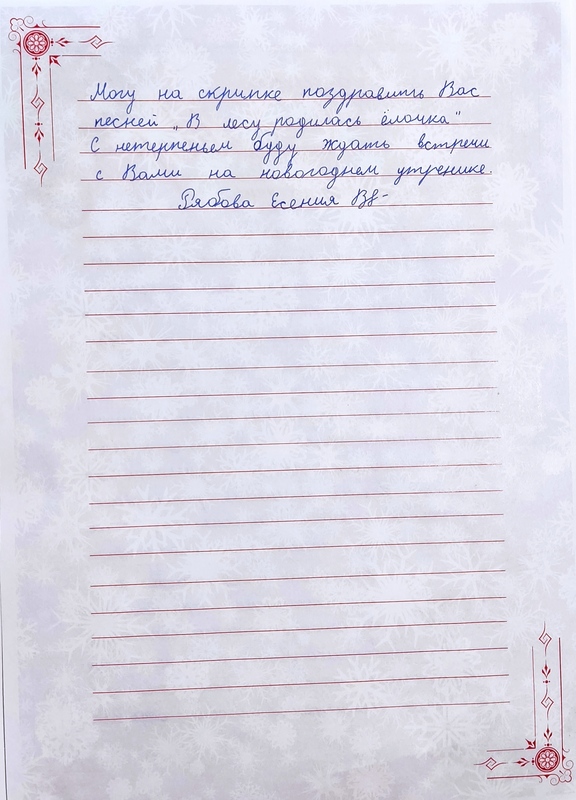 Могу на скрипке поздравить Вас
песней „В лесу родилась ёлочка"
С нетерпеньем буду ждать встречи
с Вами на новогоднем утренике.
Рябова Есения